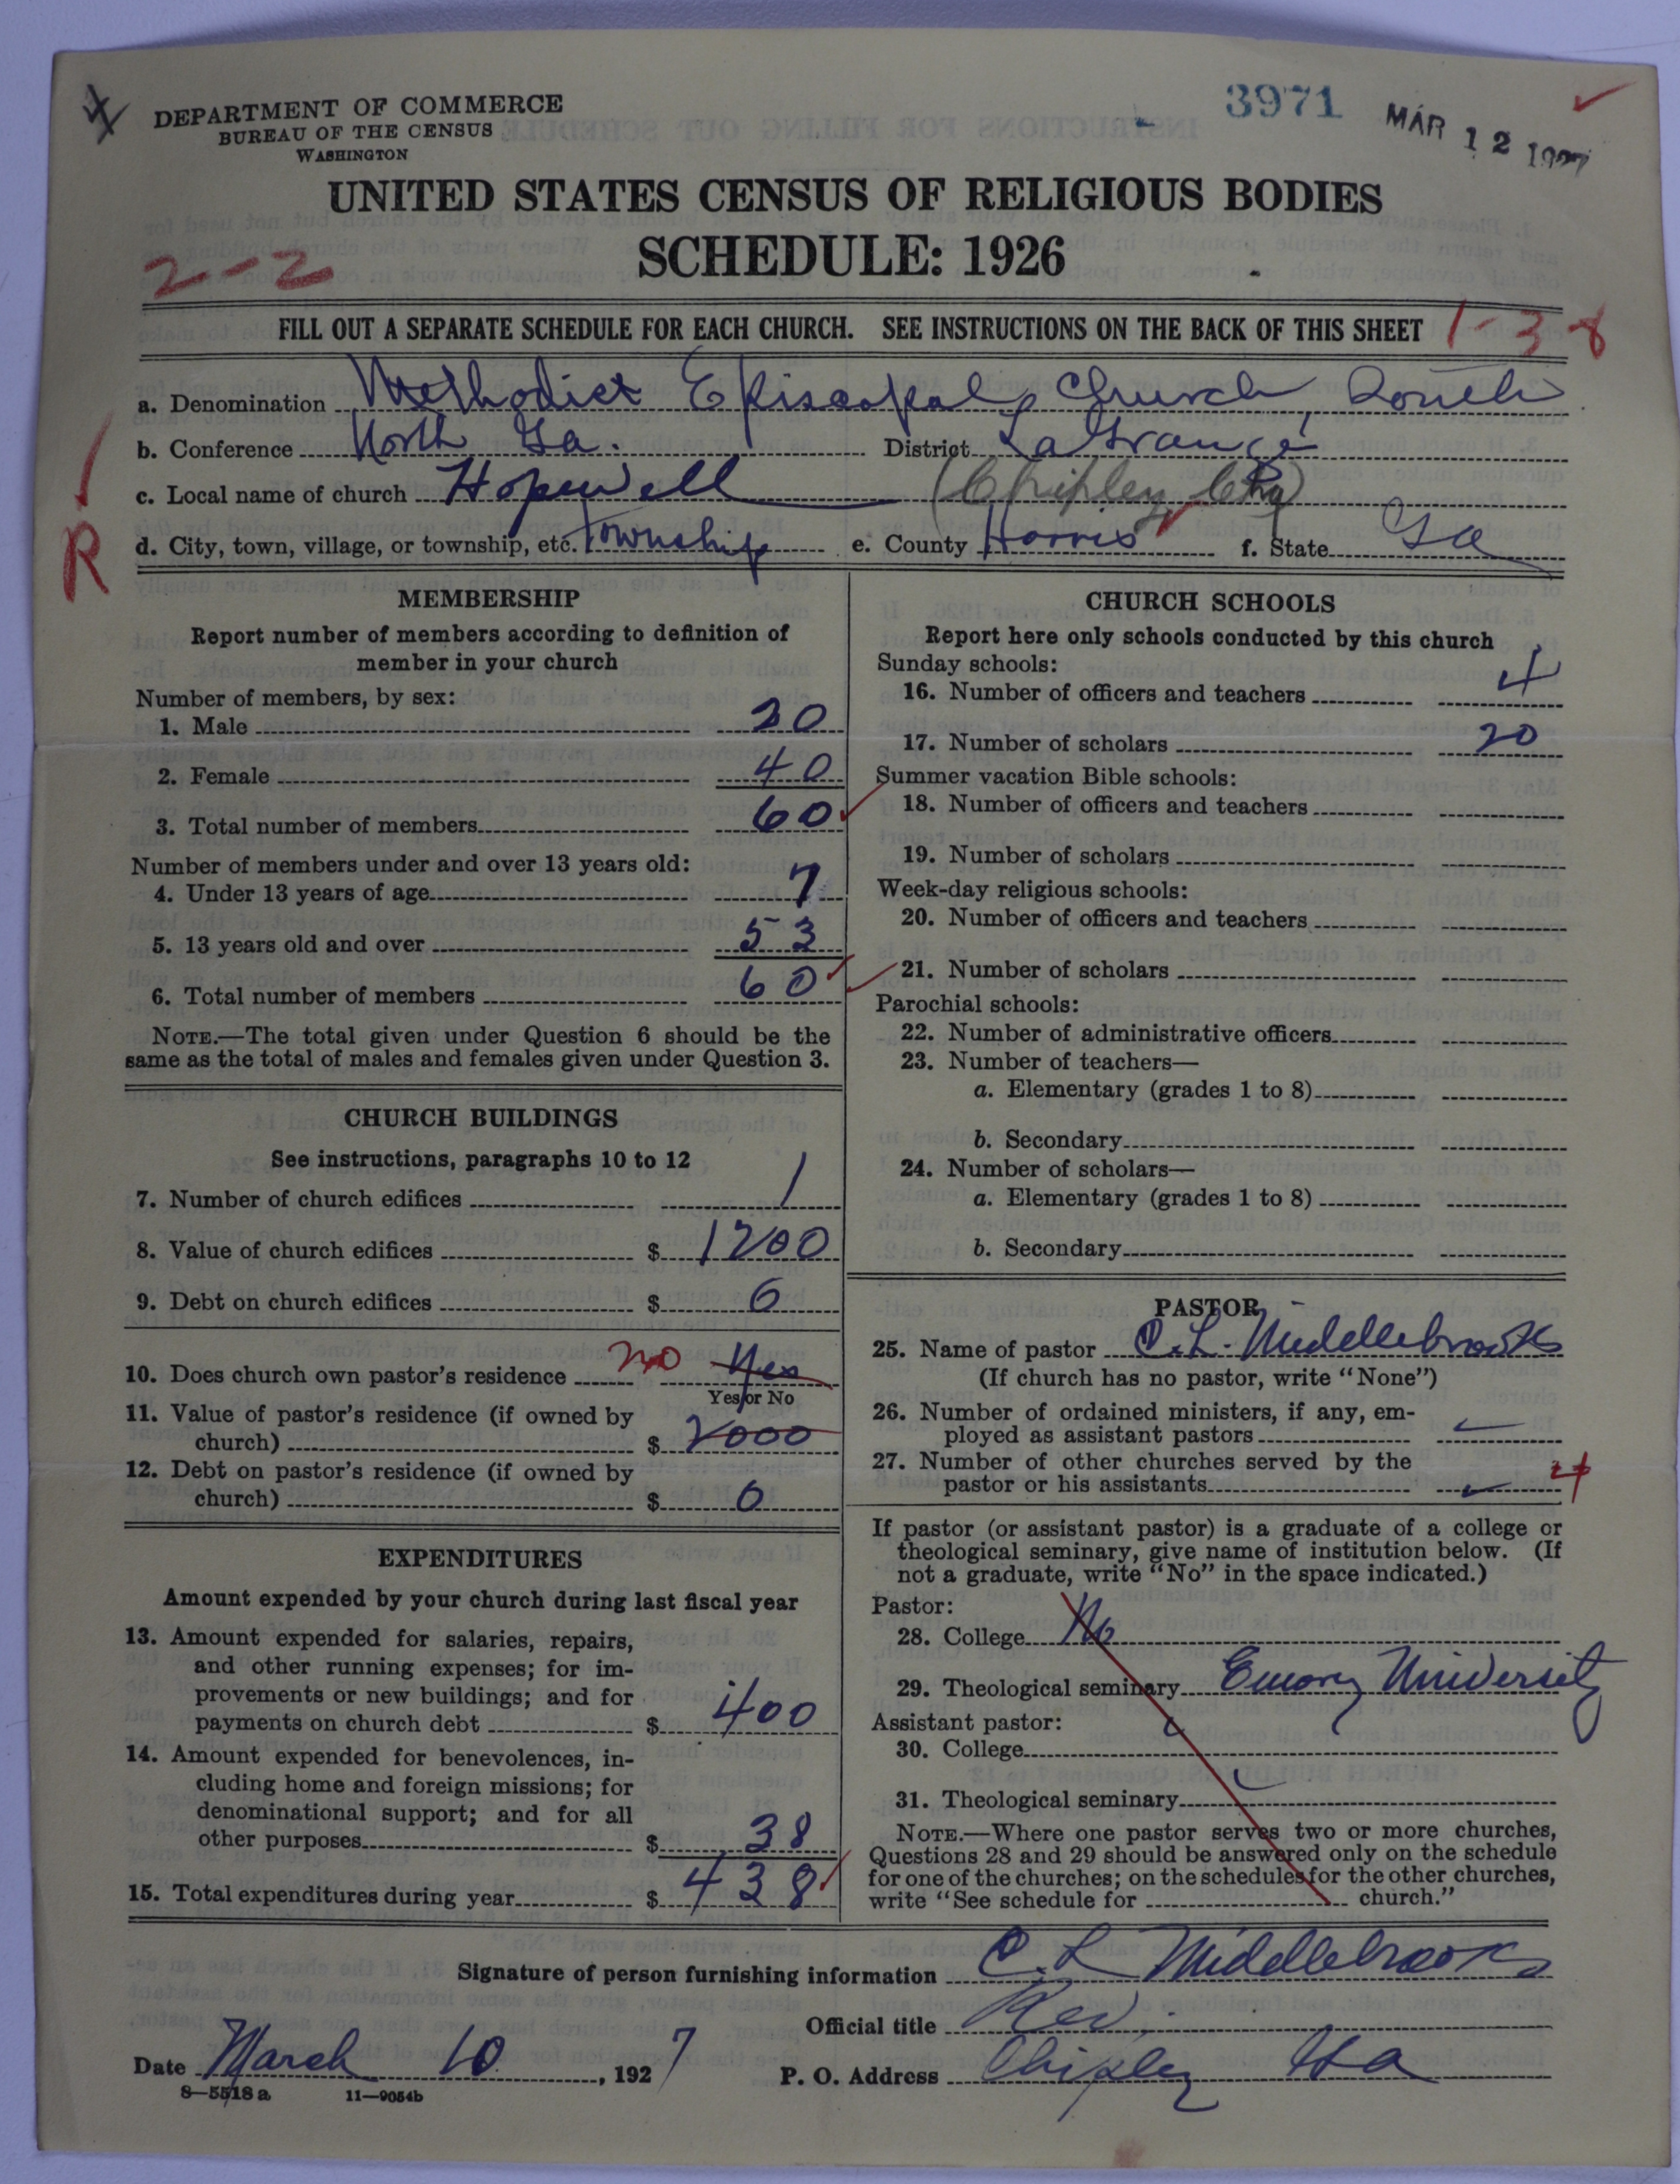 3971
MAR 12 1927
DEPARTMENT OF COMMERCE
BUREAU OF THE CENSUS
WASHINGTON
UNITED STATES CENSUS OF RELIGIOUS BODIES
SCHEDULE: 1926
2-2
FILL OUT A SEPARATE SCHEDULE FOR EACH CHURCH. SEE INSTRUCTIONS ON THE BACK OF THIS SHEET 1-38
a. Denomination Methodist Episcopal Church, South
b. Conference North Ga. District LaGrange
c. Local name of church Hopewell (Chipley Chg)
R
d. City, town, village, or township, etc. Township e. County Harris f. State Ga
MEMBERSHIP
Report number of members according to definition of
member in your church
Number of members, by sex:
1. Male 20
2. Female 40
3. Total number of members 60
Number of members under and over 13 years old:
4. Under 13 years of age 7
5. 13 years old and over 53
6. Total number of members 60
NOTE.—The total given under Question 6 should be the
same as the total of males and females given under Question 3.
CHURCH BUILDINGS
See instructions, paragraphs 10 to 12
7. Number of church edifices 1
8. Value of church edifices $ 1200
9. Debt on church edifices $ 0
10. Does church own pastor's residence no Yes
Yes or No
11. Value of pastor's residence (if owned by
church) $ 2000
12. Debt on pastor's residence (if owned by
church) $ 0
EXPENDITURES
Amount expended by your church during last fiscal year
13. Amount expended for salaries, repairs,
and other running expenses; for im-
provements or new buildings; and for
payments on church debt $ 400
14. Amount expended for benevolences, in-
cluding home and foreign missions; for
denominational support; and for all
other purposes $ 38
15. Total expenditures during year $ 438
CHURCH SCHOOLS
Report here only schools conducted by this church
Sunday schools:
16. Number of officers and teachers 4
17. Number of scholars 20
Summer vacation Bible schools:
18. Number of officers and teachers
19. Number of scholars
Week-day religious schools:
20. Number of officers and teachers
21. Number of scholars
Parochial schools:
22. Number of administrative officers
23. Number of teachers—
a. Elementary (grades 1 to 8)
b. Secondary
24. Number of scholars—
a. Elementary (grades 1 to 8)
b. Secondary
PASTOR
25. Name of pastor C. L. Middlebrooks
(If church has no pastor, write "None")
26. Number of ordained ministers, if any, em-
ployed as assistant pastors
27. Number of other churches served by the
pastor or his assistants 4
If pastor (or assistant pastor) is a graduate of a college or
theological seminary, give name of institution below. (If
not a graduate, write "No" in the space indicated.)
Pastor:
28. College No
29. Theological seminary Emory University
Assistant pastor:
30. College
31. Theological seminary
NOTE.—Where one pastor serves two or more churches,
Questions 28 and 29 should be answered only on the schedule
for one of the churches; on the schedules for the other churches,
write "See schedule for church."
Signature of person furnishing information C. L Middlebrooks
Official title Rev.
Date March 10, 1927 P. O. Address Chipley Ga
8—5518 a 11—9054b